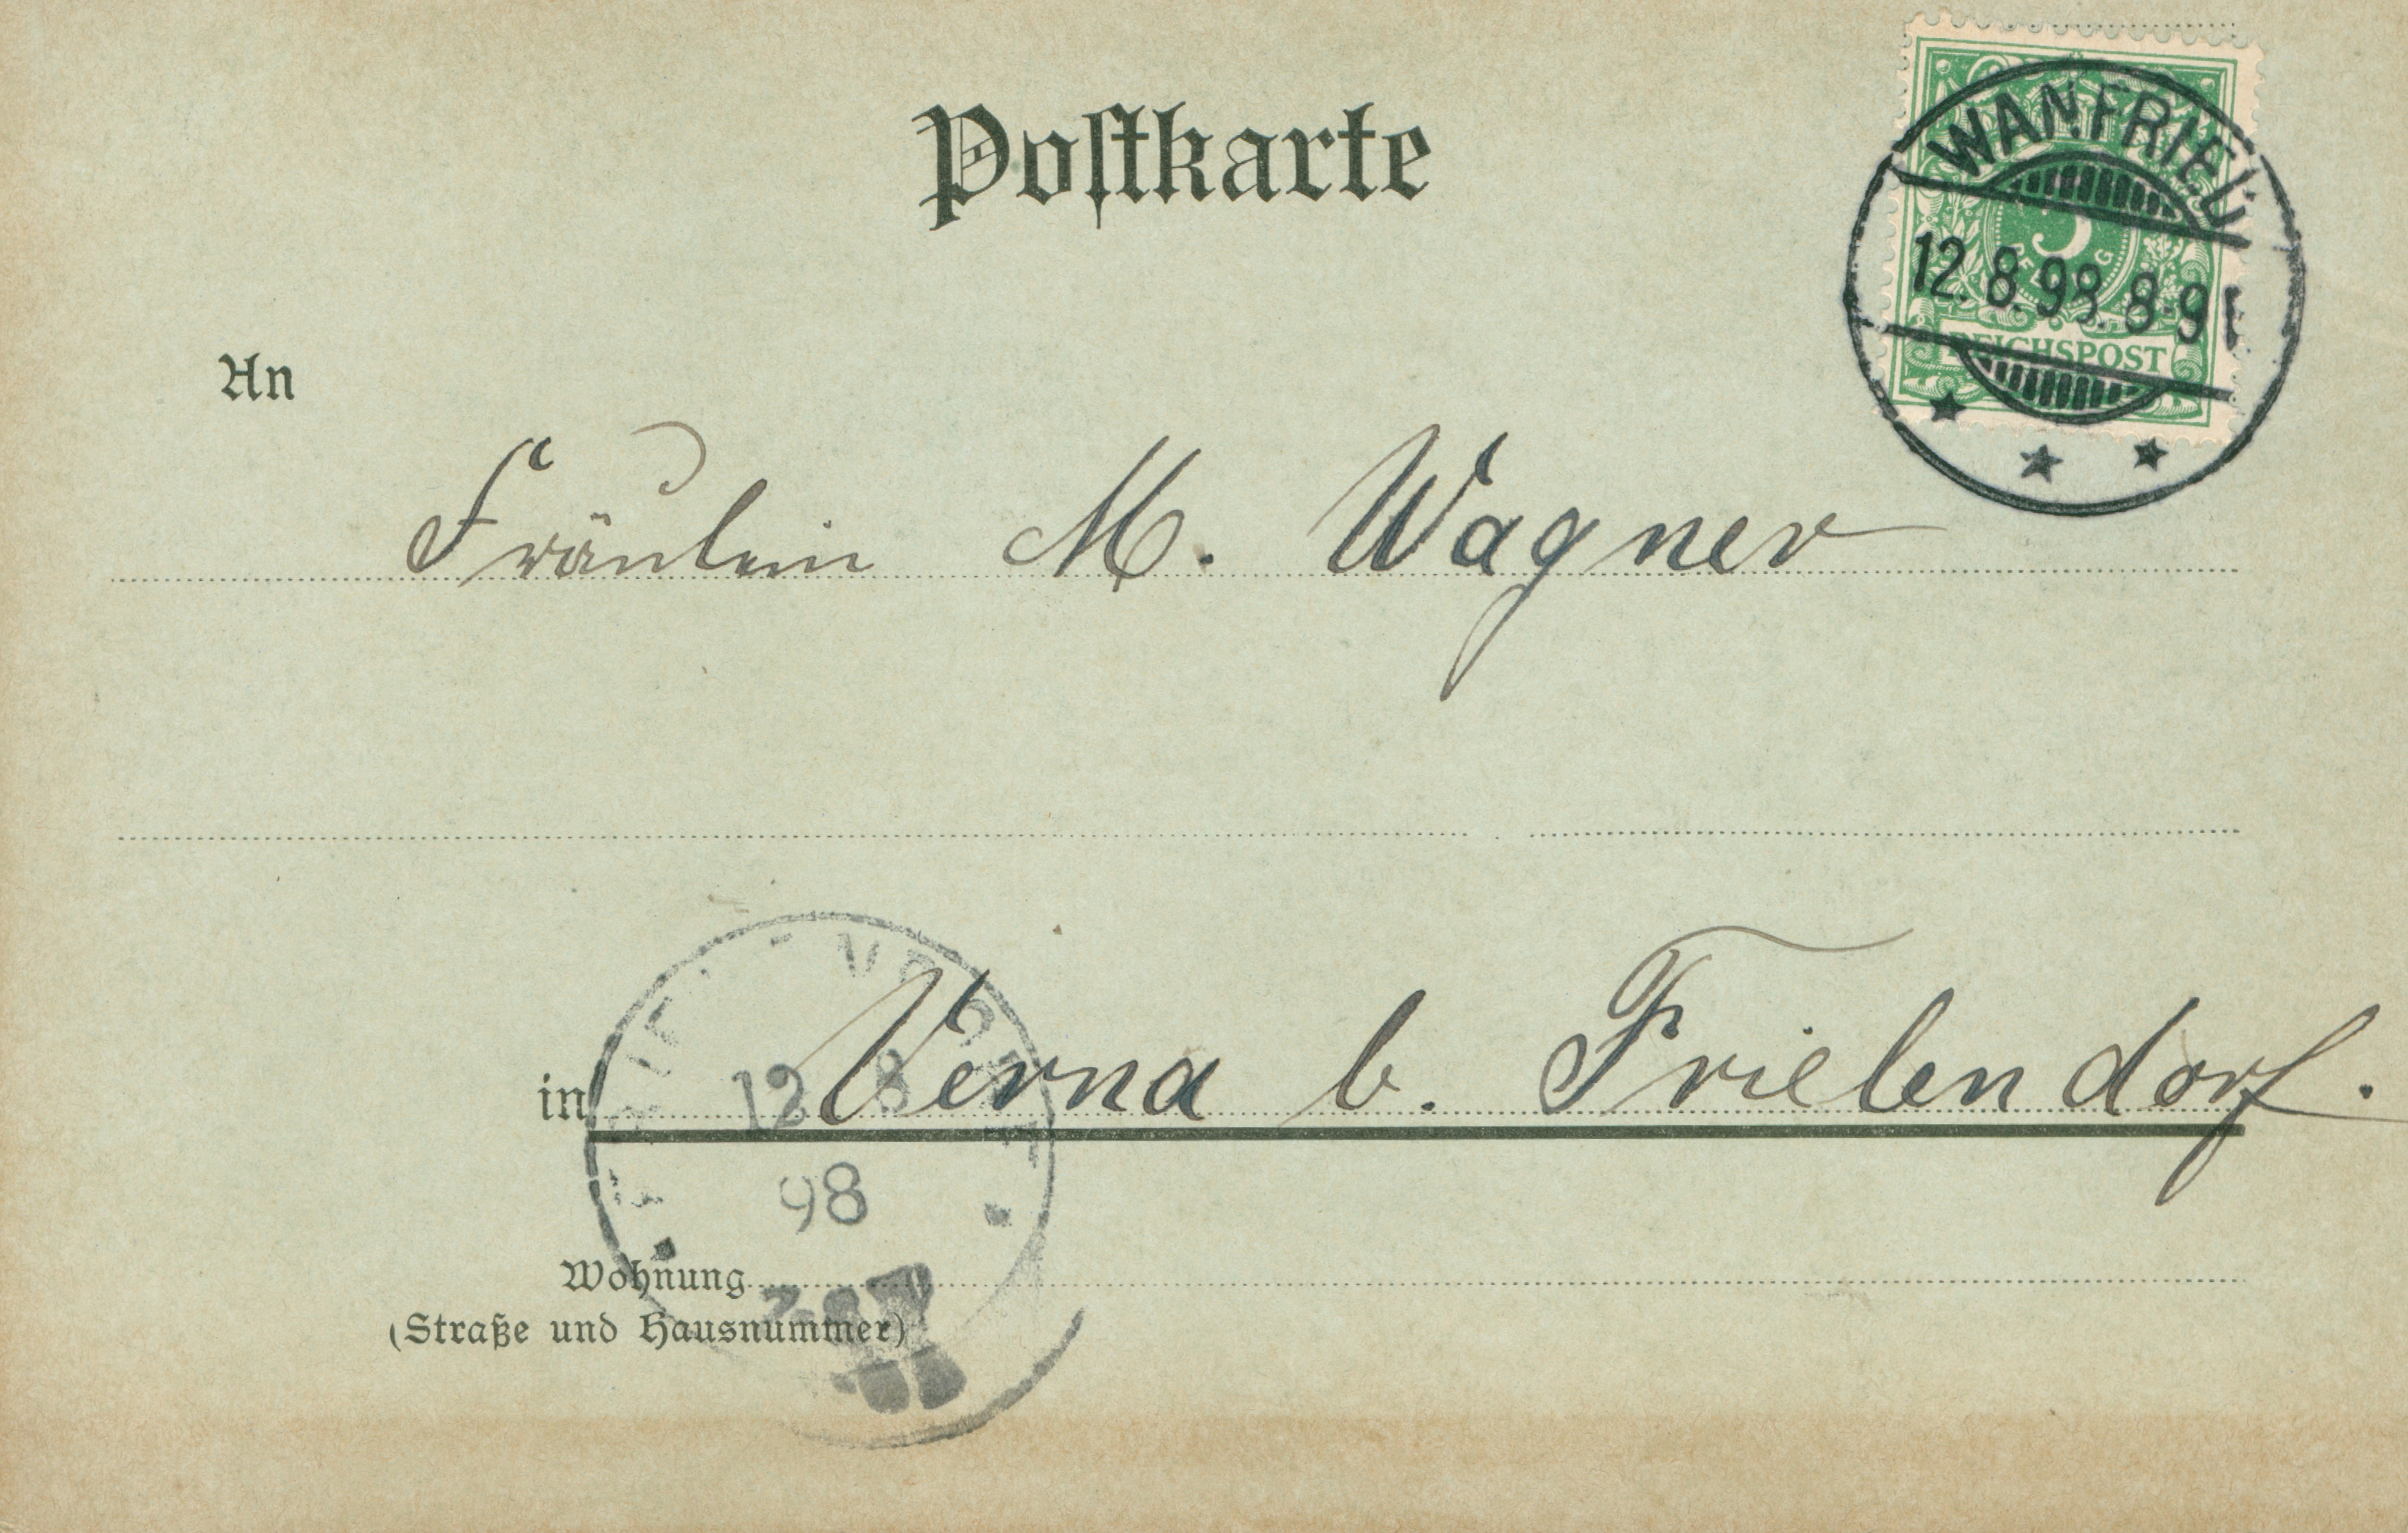 Postkarte
WANFRIED
12.8.98. 8-9
5
REICHSPOST
An
Fräulein M. Wagner
in Verna b. Frielendorf.
12 8
98
Wohnung
(Straße und Hausnummer)